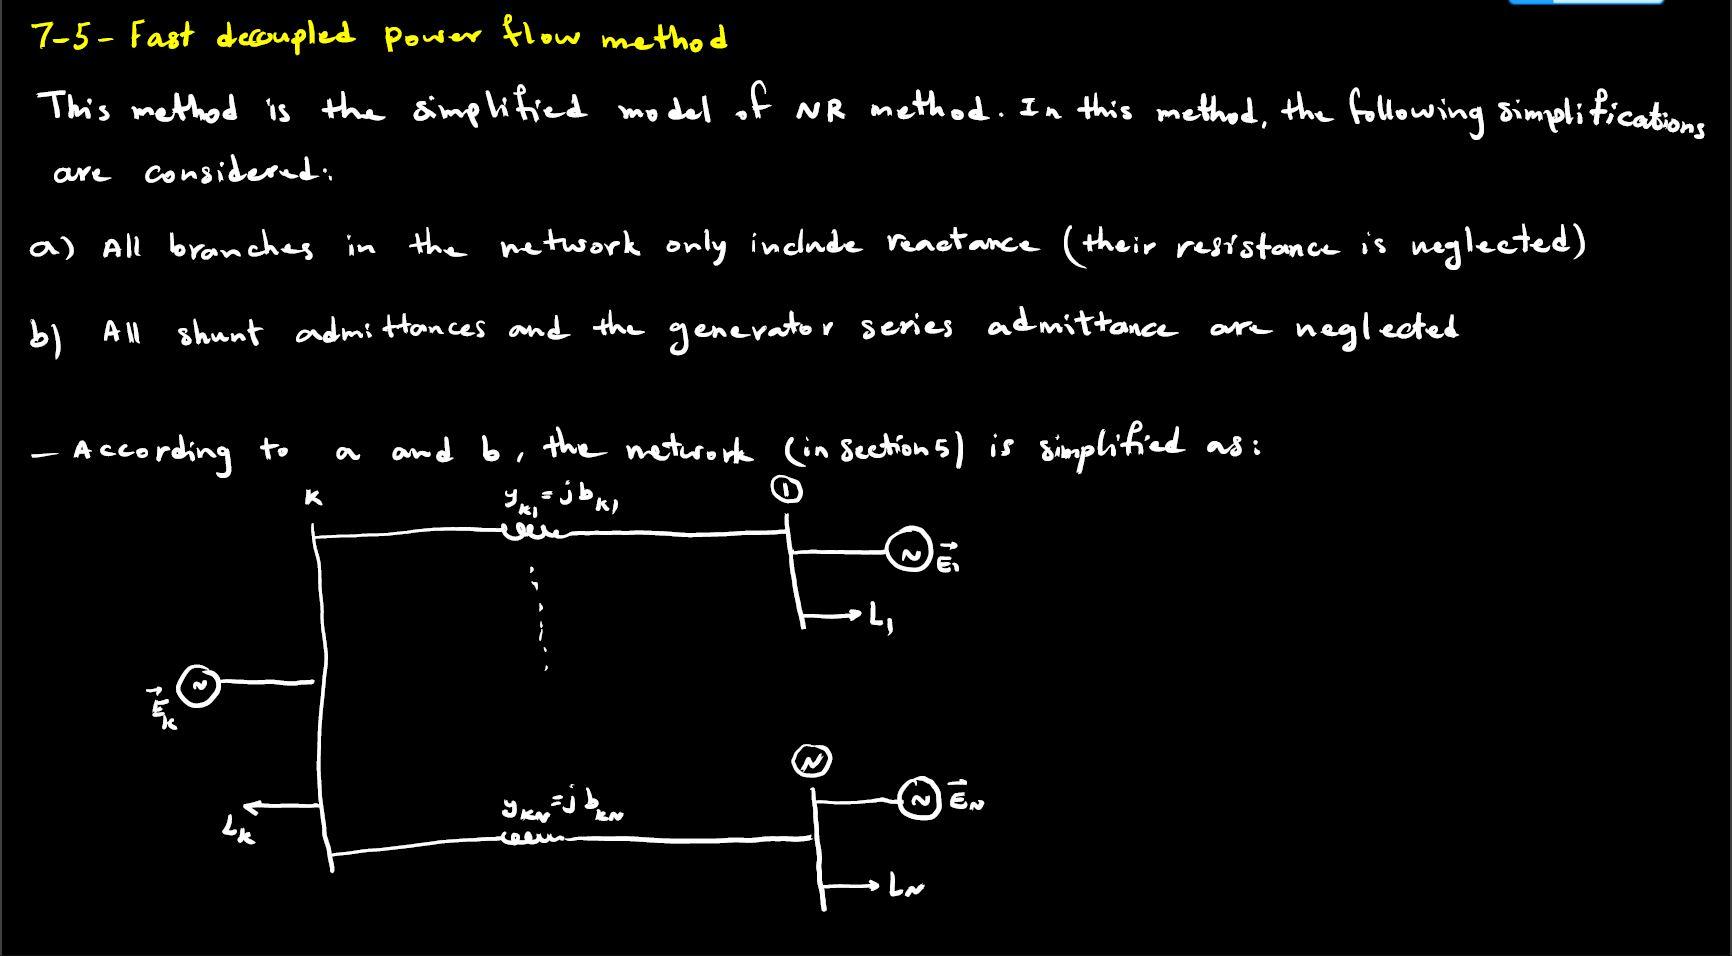 7-5- Fast decoupled power flow method
This method is the simplified model of NR method. In this method, the following simplifications
are considered:
a) All branches in the network only include reactance (their resistance is neglected)
b) All shunt admittances and the generator series admittance are neglected
- According to a and b, the network (in section 5) is simplified as:
K
y_{K1} = j b_{K1}
1
~ \vec{E}_1
L_1
~
\vec{E}_k
N
L_k
y_{KN} = j b_{KN}
~ \vec{E}_N
L_N